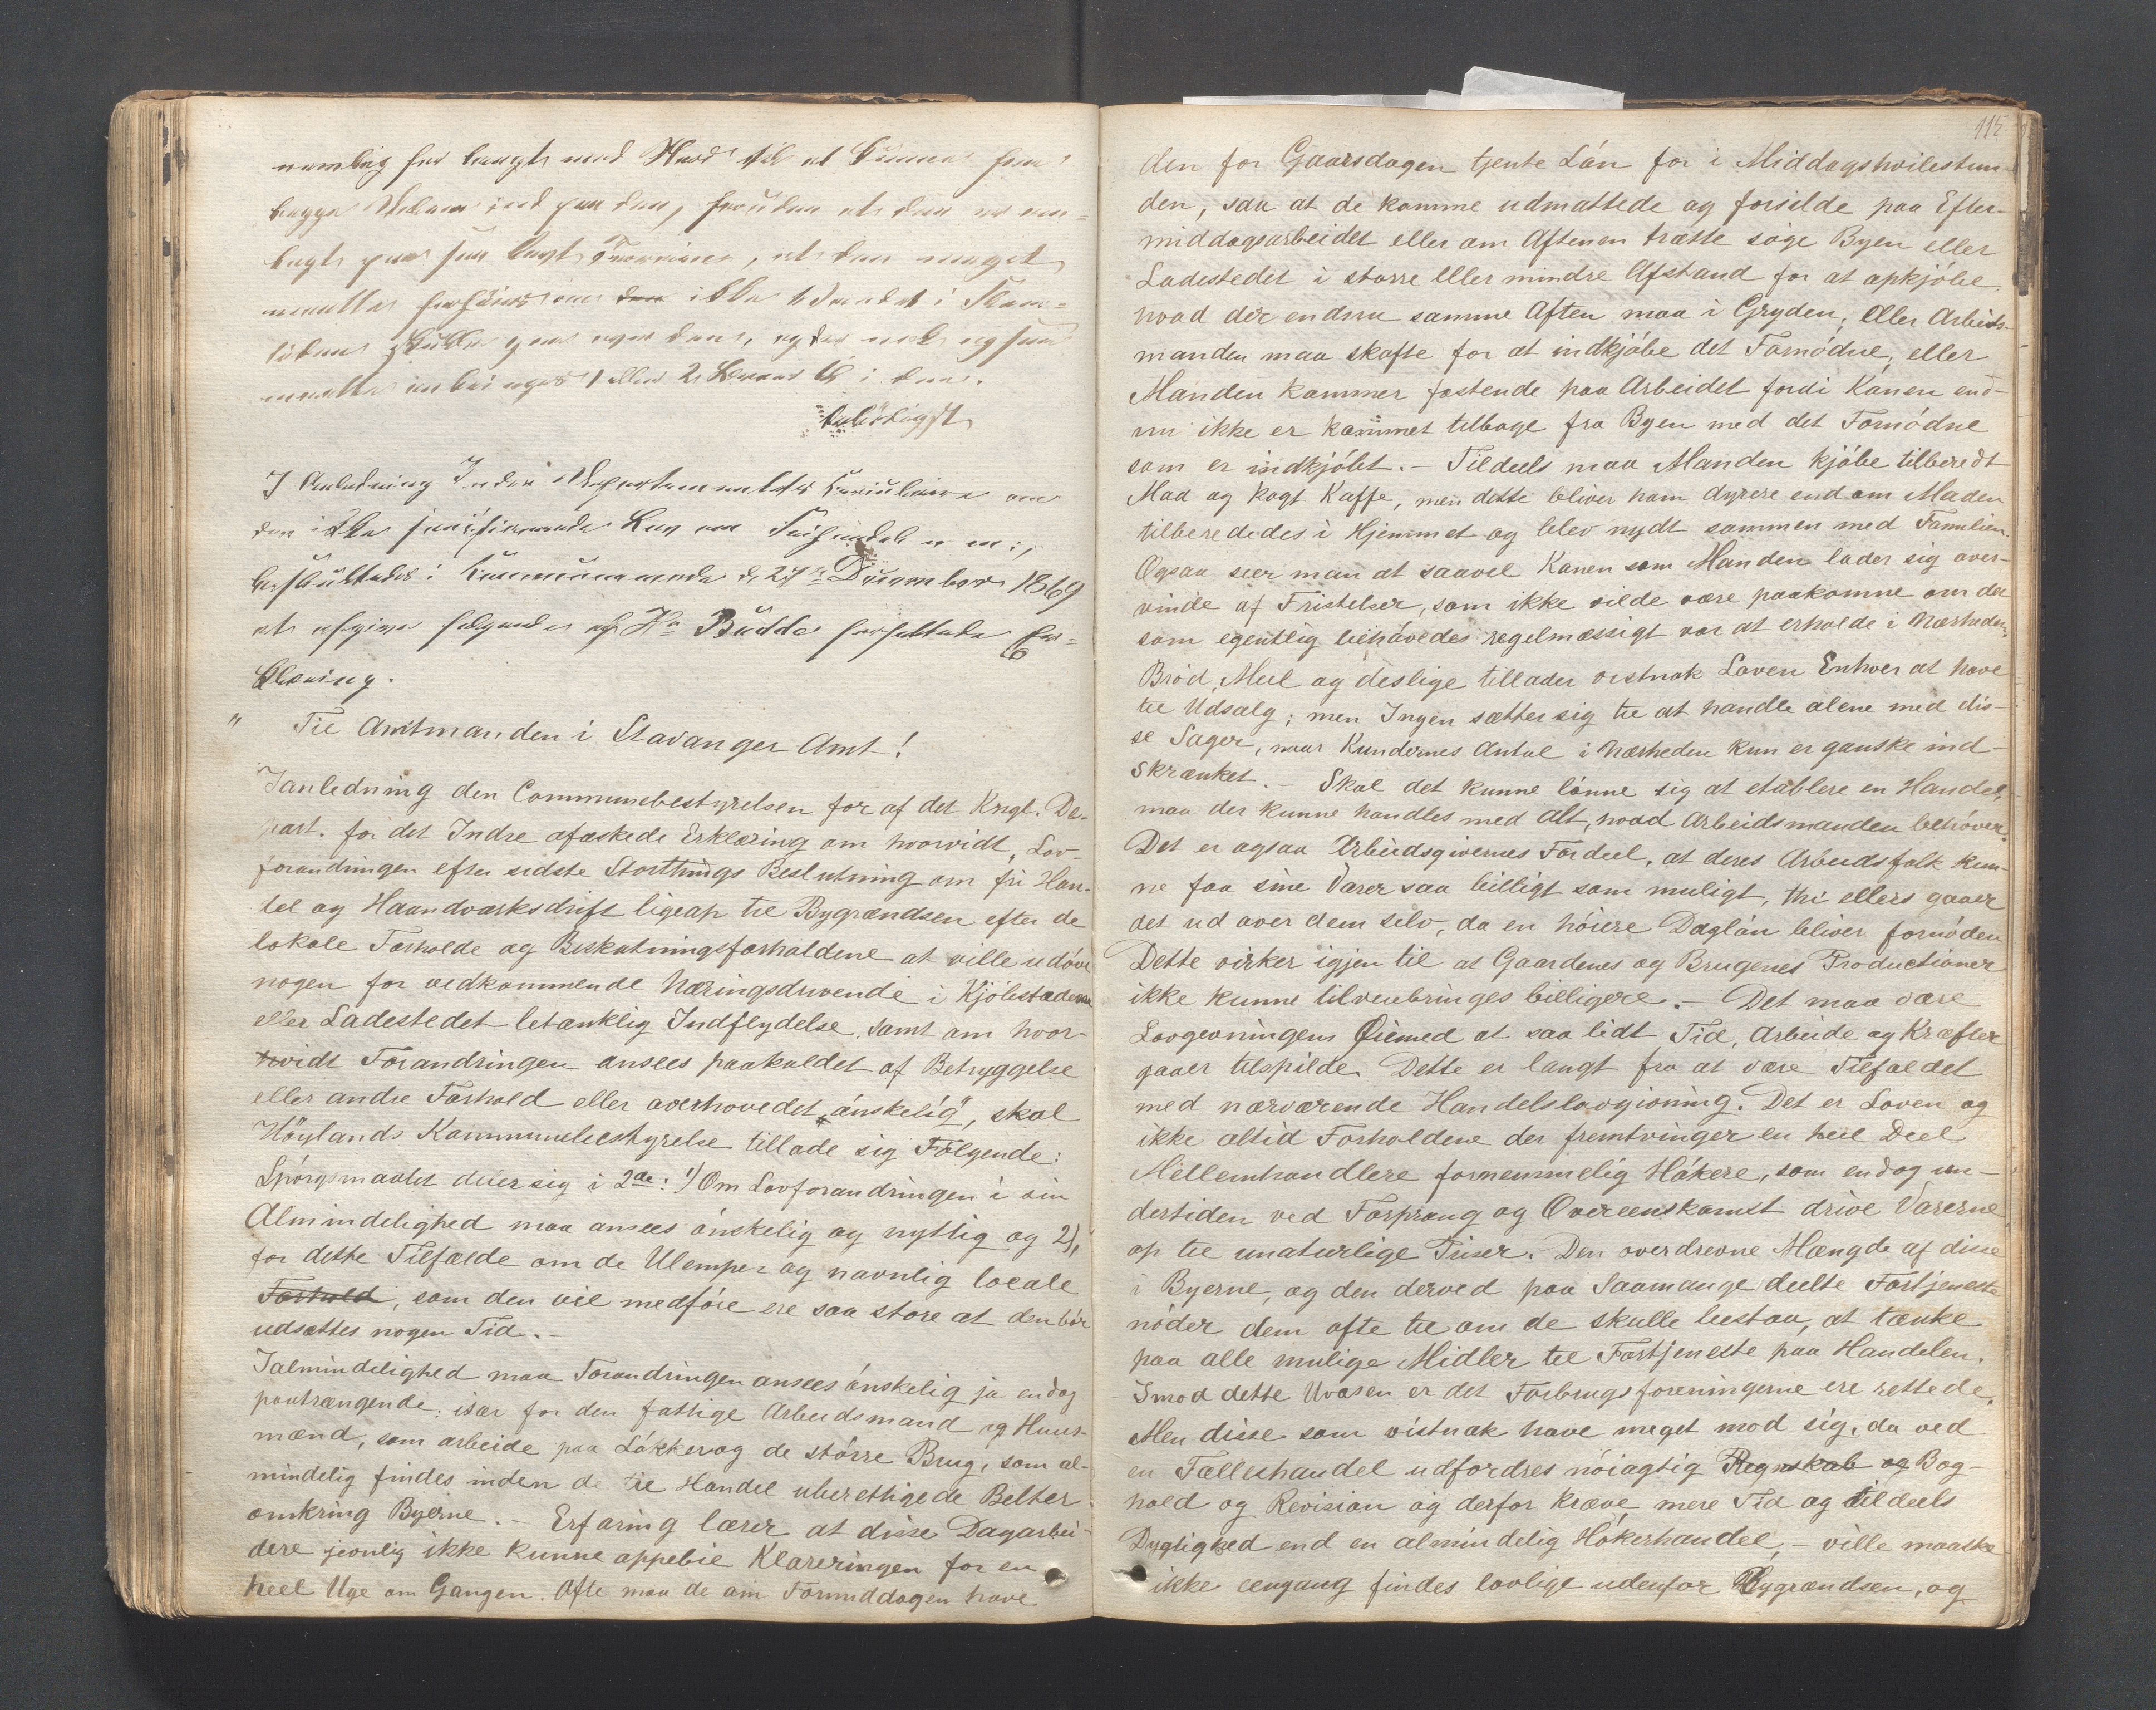 nemlig for langt mod Nord til at kunne faa
begge Veiene ind paa den, foruden at den er an-
lagt paa saa lavt Terrain, at den meget
maatte forhøies om den ikke Vandet i Flom-
tiden skulde gaae over den, og der nok ogsaa
maatte anbringes 1 eller 2 i den.
Ærbødigst
I Anledning Indre Departementets Circulaire om
den ikke sanctionerede Lov om Frihandel m. m.,
besluttedes i Kommunemøde d. 27de December 1869
at afgive følgende af Hr Budde forfattede Er-
klæring.
" Til Amtmanden i Stavanger Amt!
Ianledning den Communebestyrelsen for af det Kngl. De-
part. for det Indre afæskede Erklæring om hvorvidt, Lov-
forandringen efter sidste Storthings Beslutning om fri Han-
del og Haandværksdrift ligeop til Bygrændsen efter de
lokale Forholde og Beskatningsforholdene at ville udöve
nogen for vedkommende Næringsdrivende i Kjöbstæderne
eller Ladestedet betænklig Indflydelse, samt om hvor-
hvidt Forandringen ansees paakaldet af Betryggelse
eller andre Forhold eller overhovedet "önskelig", skal
Höylands Kommunebestyrelse tillade sig Fölgende:
Spörgsmaalet deler sig i 2de: 1) Om Lovforandringen i sin
Almindelighed maa ansees önskelig og nyttig og 2),
for dette Tilfælde om de Ulemper og navnlig locale
Forhold, som den vil medföre ere saa store at den bör
udsættes nogen Tid. -
Ialmindelighed maa Forandringen ansees önskelig ja endog
paatrængende; især for den fattige Arbeidsmand og Huus-
mænd, som arbeide paa Lökker og de större Brug, som al-
mindelig findes inden de til Handel uberettigede Belter
omkring Byerne. - Erfaring lærer at disse Dagarbei-
dere jevnlig ikke kunne oppebie Klareringen for en
heel Uge om Gangen. Ofte maa de om Formiddagen have
115
den for Gaarsdagen tjente Lön for i Middagshvilestun-
den, saa at de komme udmattede og forsilde paa Efter-
middagsarbeidet eller om Aftenen trætte söge Byen eller
Ladestedet i større eller mindre Afstand for at opkjöbe
hvad der endnu samme Aften maa i Gryden; eller Arbeids-
manden maa skofte for at indkjöbe det Fornödne, eller
Manden kommer fastende paa Arbeidet fordi Konen end-
nu ikke er kommet tilbage fra Byen med det Fornödne
som er indkjöbt. - Tildeels maa Manden kjöbe tilberedt
Mad og kogt Kaffe, men dette bliver ham dyrere end om Maden
tilberededes i Hjemmet og blev nydt sammen med Familien.
Ogsaa seer man at saavel Konen som Manden lader sig over-
vinde af Fristelser, som ikke vilde være paakomne om det
som egentlig behövedes regelmæssigt var at erholde i Nærheden.
Bröd, Meel og deslige tillader vistnok Loven Enhver at have
til Udsalg; men Ingen sætter sig til at handle alene med dis-
se Sager, naar Kundernes Antal i Nærheden kun er ganske ind-
skrænket. - Skal det kunne lönne sig at etablere en Handel,
maa der kunne handles med Alt, hvad Arbeidsmanden behöver.
Det er ogsaa Arbeidsgivernes Fordeel, at deres Arbeidsfolk kun-
ne faa sine Varer saa billigt som muligt, thi ellers gaaer
det ud over dem selv, da en höiere Daglön bliver fornöden
Dette virker igjen til at Gaardenes og Brugenes Productioner
ikke kunne tilveiebringes billigere. - Det maa være
Lovgivningens Öiemed at saa lidt Tid, Arbeide og Kræfter
gaaer tilspilde. Dette er langt fra at være Tilfældet
med nærværende Handelslovgivning. Det er Loven og
ikke altid Forholdene der fremtvinger en heel Deel
Mellemhandlere fornemmelig Hökere, som endog un-
dertiden ved Forprang og Overeenskomst drive Varerne
op til unaturlige Priser. Den overdrevne Mængde af disse
i Byerne, og den derved paa Saamange deelte Fortjeneste
nöder dem ofte til om de skulle bestaa, at tænke
paa alle mulige Midler til Fortjeneste paa Handelen.
Imod dette Uvæsen er det Forbrugsforeningerne ere rettede.
Men disse som vistnok have meget mod sig, da ved
en Fælleshandel udfordres nöiagtig Regnskab og Bog-
hold og Revision og derfor kræve mere Tid og tildeels
Dygtighed end en almindelig Hökerhandel, - ville maaske
ikke eengang findes lovlige udenfor Bygrændsen, og